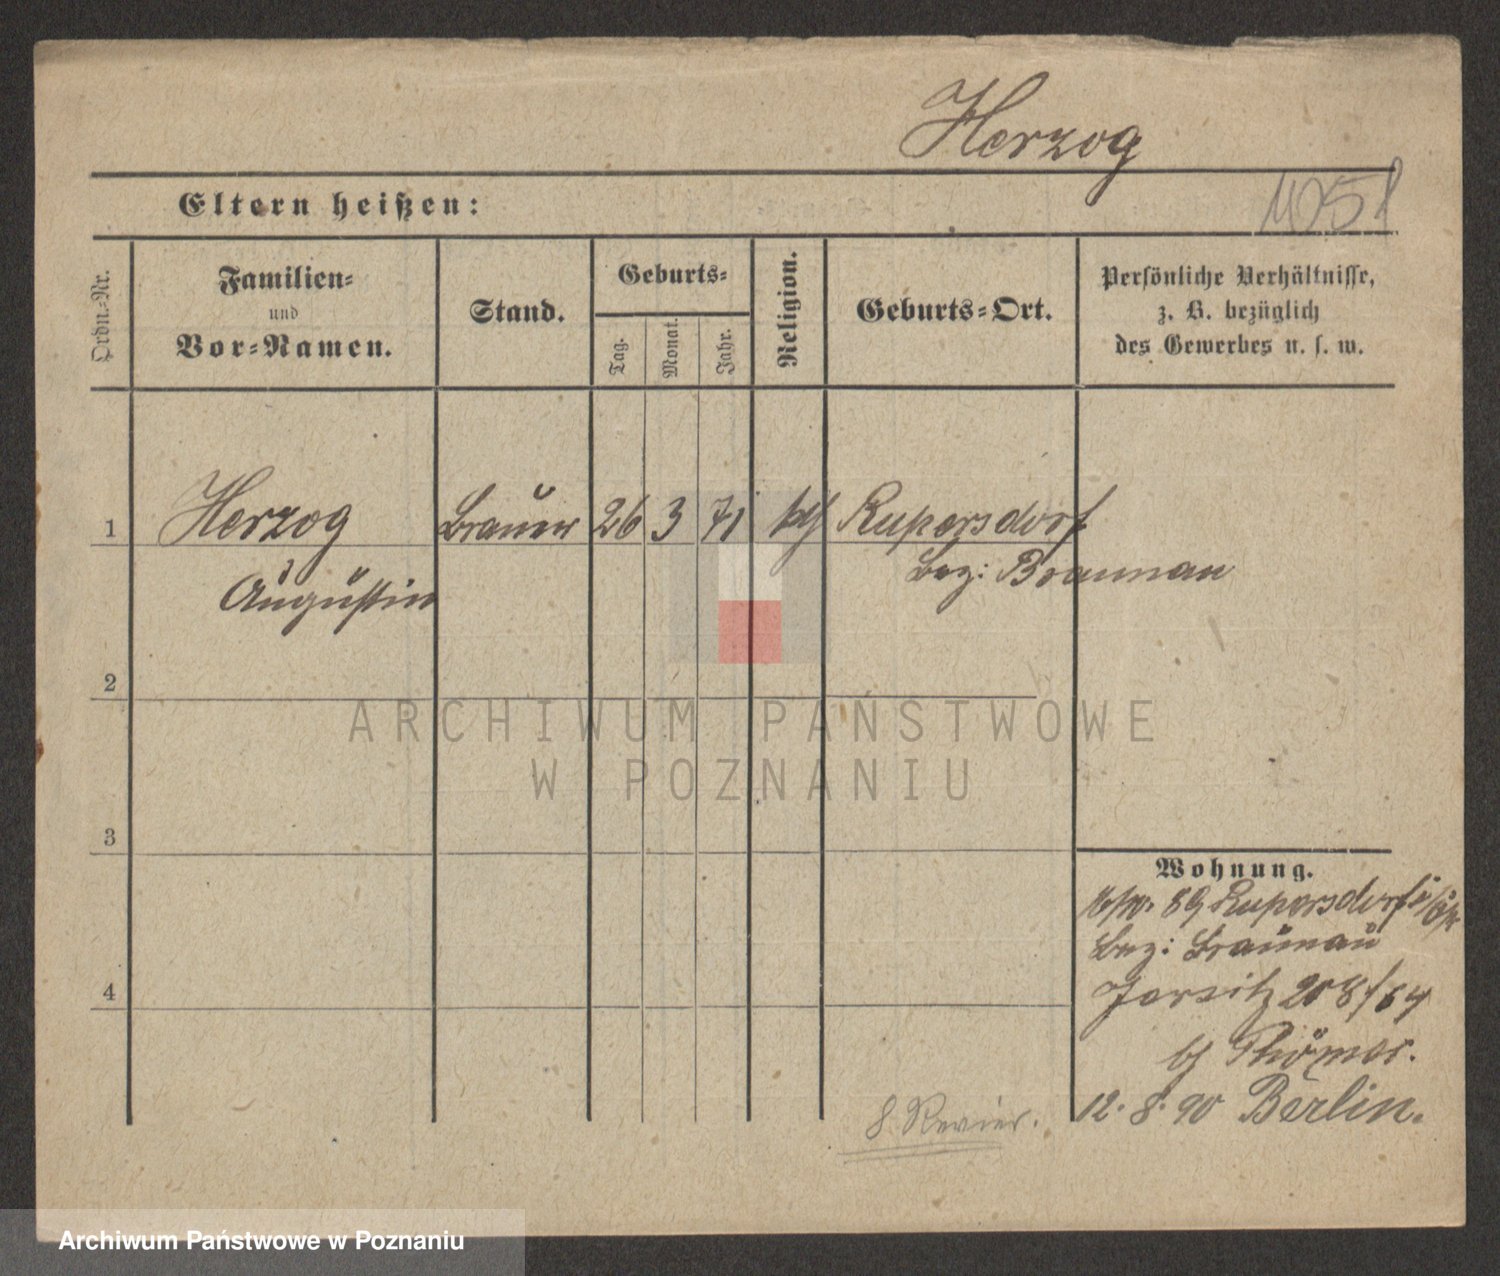 Herzog
Eltern heißen:
Ordn.-Nr.
Familien-
und
Vor-Namen.
Stand.
Geburts-
Tag.
Monat.
Jahr.
Religion.
Geburts-Ort.
Persönliche Verhältnisse,
z. B. bezüglich
des Gewerbes u. s. w.
1 Herzog Brauer 26 3 71 kth Rupersdorf
Bez: Braunau
Augustin
2
3
4
ARCHIWUM PAŃSTWOWE
W POZNANIU
Wohnung.
89 Rupersdorf
Bez: Braunau
Jersitz 208/64
12. 8. 90 Berlin.
8 Revier.
Archiwum Państwowe w Poznaniu